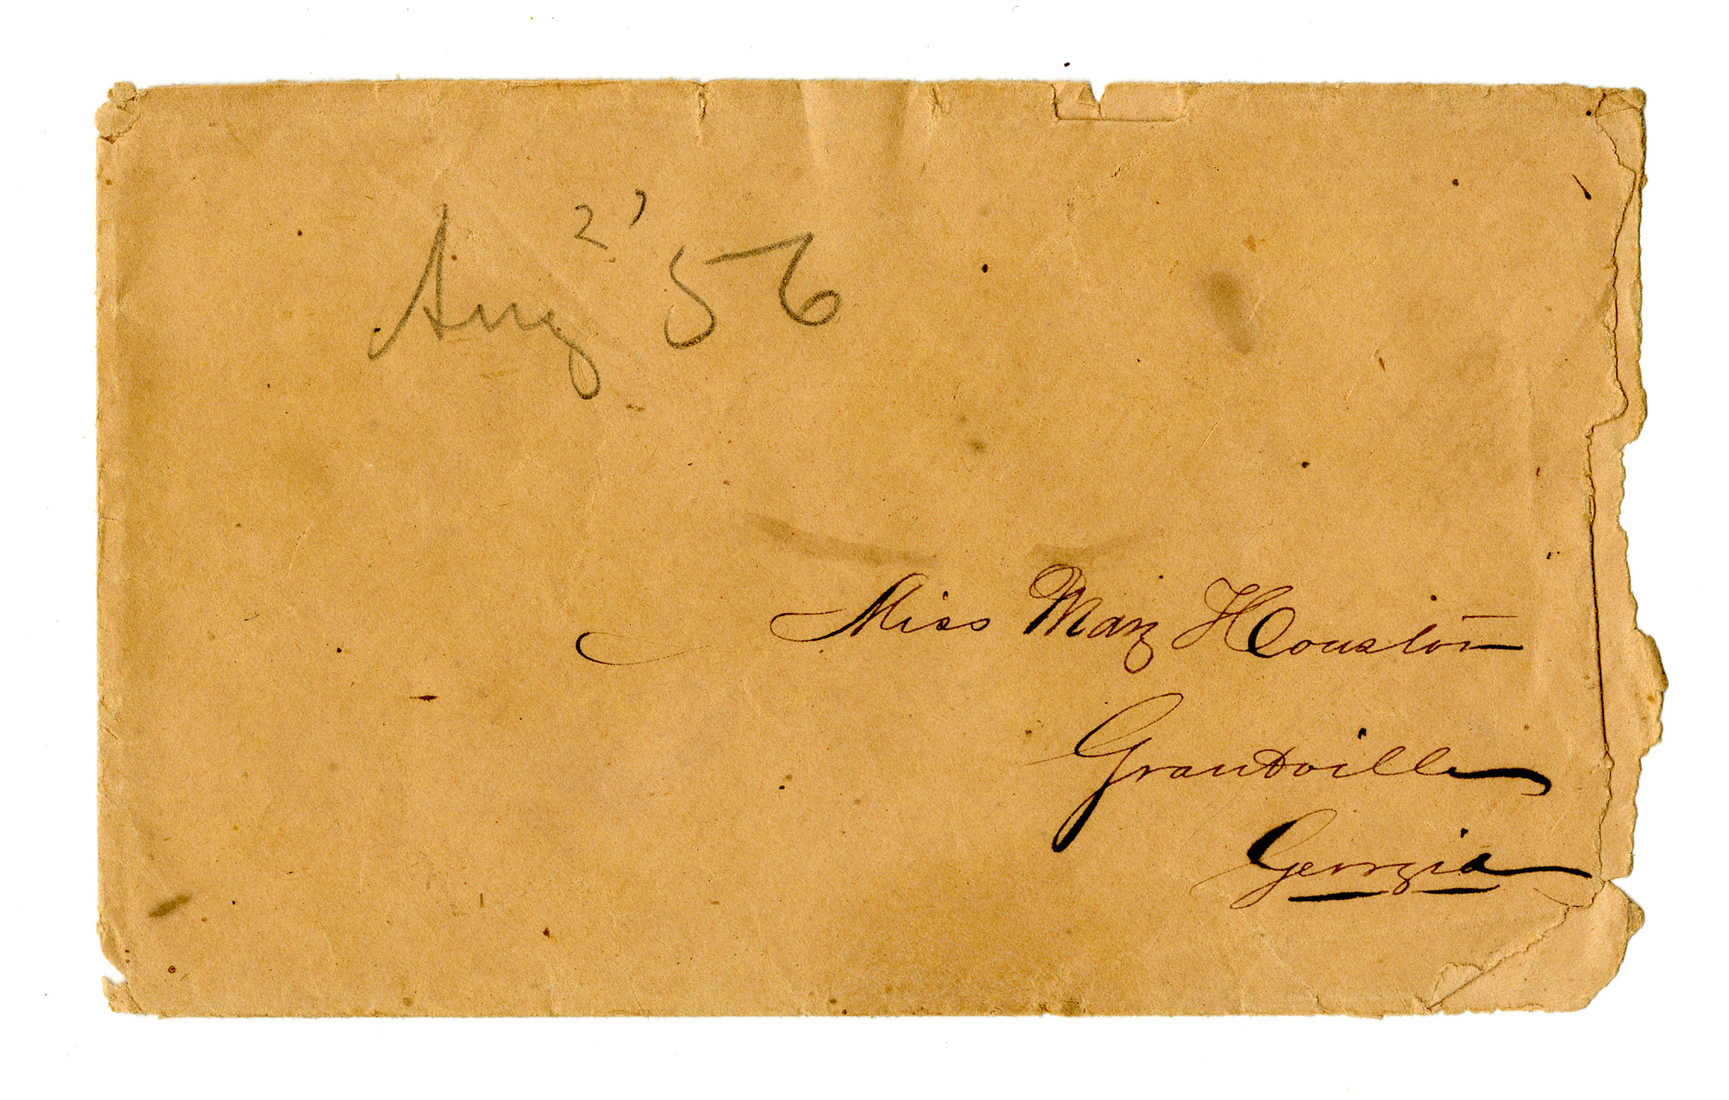 Aug 2 '56
Miss Mary Houston
Grantville
Georgia